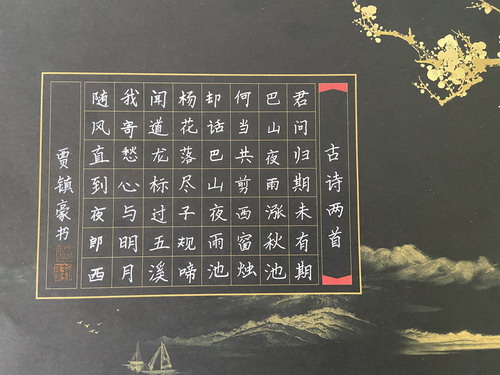 古诗两首
君问归期未有期
巴山夜雨涨秋池
何当共剪西窗烛
却话巴山夜雨池
杨花落尽子规啼
闻道龙标过五溪
我寄愁心与明月
随风直到夜郎西
贾镇豪书